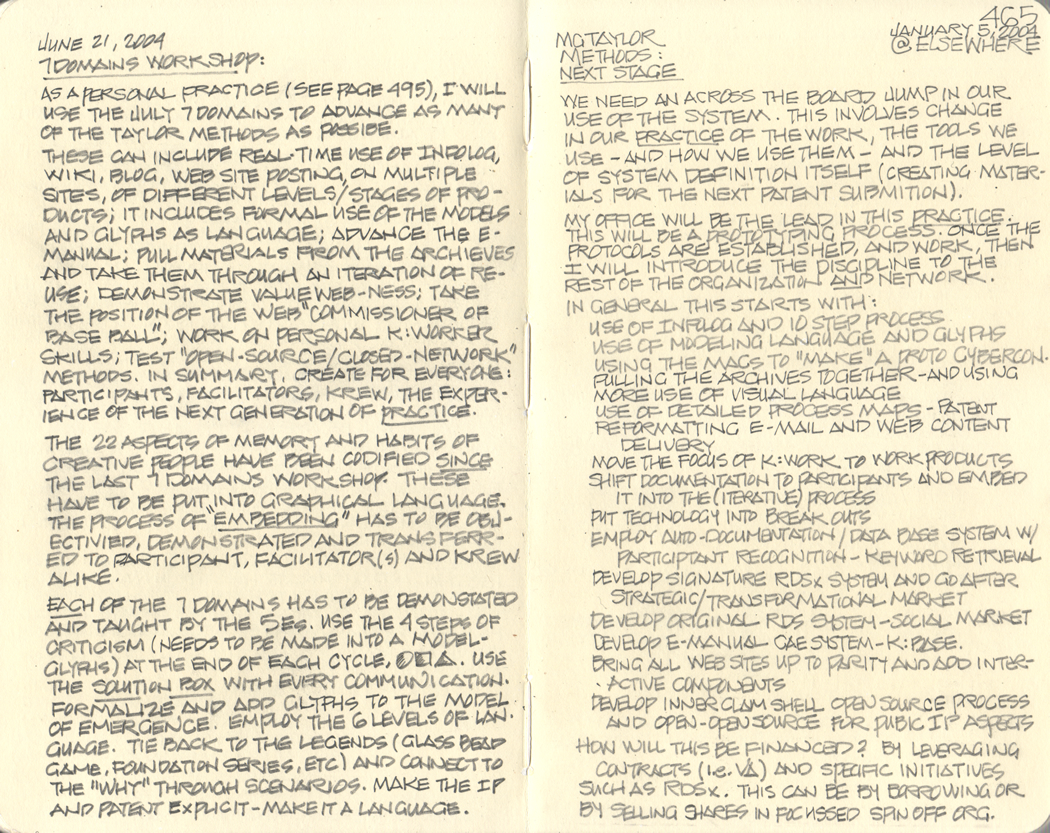 JUNE 21, 2004
7 DOMAINS WORKSHOP:
AS A PERSONAL PRACTICE (SEE PAGE 495), I WILL
USE THE JULY 7 DOMAINS TO ADVANCE AS MANY
OF THE TAYLOR METHODS AS POSSIBE.
THESE CAN INCLUDE REAL-TIME USE OF INFOLOG,
WIKI, BLOG, WEB SITE POSTING, ON MULTIPLE
SITES, OF DIFFERENT LEVELS/STAGES OF PRO-
DUCTS; IT INCLUDES FORMAL USE OF THE MODELS
AND GLYPHS AS LANGUAGE; ADVANCE THE E-
MANUAL; PULL MATERIALS FROM THE ARCHIEVES
AND TAKE THEM THROUGH AN ITERATION OF RE-
USE; DEMONSTRATE VALUE WEB-NESS; TAKE
THE POSITION OF THE WEB "COMMISSIONER OF
BASE BALL"; WORK ON PERSONAL K:WORKER
SKILLS; TEST "OPEN-SOURCE/CLOSED-NETWORK"
METHODS. IN SUMMARY, CREATE FOR EVERYONE:
PARTICIPANTS, FACILITATORS, KREW, THE EXPER-
IENCE OF THE NEXT GENERATION OF PRACTICE.
THE 22 ASPECTS OF MEMORY AND HABITS OF
CREATIVE PEOPLE HAVE BEEN CODIFIED SINCE
THE LAST 7 DOMAINS WORKSHOP. THESE
HAVE TO BE PUT INTO GRAPHICAL LANGUAGE.
THE PROCESS OF "EMBEDDING" HAS TO BE OBJ-
ECTIVIED, DEMONSTRATED AND TRANSFERR-
ED TO PARTICIPANT, FACILITATOR(S) AND KREW
ALIKE.
EACH OF THE 7 DOMAINS HAS TO BE DEMONSTATED
AND TAUGHT BY THE 5 ES. USE THE 4 STEPS OF
CRITICISM (NEEDS TO BE MADE INTO A MODEL-
GLYPHS) AT THE END OF EACH CYCLE, ○□△. USE
THE SOLUTION BOX WITH EVERY COMMUNICATION.
FORMALIZE AND ADD GLYPHS TO THE MODEL
OF EMERGENCE. EMPLOY THE 6 LEVELS OF LAN-
GUAGE. TIE BACK TO THE LEGENDS (GLASS BEAD
GAME, FOUNDATION SERIES, ETC) AND CONNECT TO
THE "WHY" THROUGH SCENARIOS. MAKE THE IP
AND PATENT EXPLICIT - MAKE IT A LANGUAGE.
465
JANUARY 5, 2004
@ ELSEWHERE
MG TAYLOR
METHODS:
NEXT STAGE
WE NEED AN ACROSS THE BOARD JUMP IN OUR
USE OF THE SYSTEM. THIS INVOLVES CHANGE
IN OUR PRACTICE OF THE WORK, THE TOOLS WE
USE - AND HOW WE USE THEM - AND THE LEVEL
OF SYSTEM DEFINITION ITSELF (CREATING MATER-
IALS FOR THE NEXT PATENT SUBMITION).
MY OFFICE WILL BE THE LEAD IN THIS PRACTICE.
THIS WILL BE A PROTOTYPING PROCESS. ONCE THE
PROTOCOLS ARE ESTABLISHED, AND WORK, THEN
I WILL INTRODUCE THE DISCIPLINE TO THE
REST OF THE ORGANIZATION AND NETWORK.
IN GENERAL THIS STARTS WITH:
USE OF INFOLOG AND 10 STEP PROCESS
USE OF MODELING LANGUAGE AND GLYPHS
USING THE MACS TO "MAKE" A PROTO CYBERCON.
PULLING THE ARCHIVES TOGETHER - AND USING
MORE USE OF VISUAL LANGUAGE
USE OF DETAILED PROCESS MAPS - PATENT
REFORMATTING E-MAIL AND WEB CONTENT
DELIVERY
MOVE THE FOCUS OF K:WORK TO WORK PRODUCTS
SHIFT DOCUMENTATION TO PARTICIPANTS AND EMBED
IT INTO THE (ITERATIVE) PROCESS
PUT TECHNOLOGY INTO BREAK OUTS
EMPLOY AUTO-DOCUMENTATION/DATA BASE SYSTEM W/
PARTICIPTANT RECOGNITION - KEYWORD RETRIEVAL
DEVELOP SIGNATURE RDSx SYSTEM AND GO AFTER
STRATEGIC/TRANSFORMATIONAL MARKET
DEVELOP ORIGINAL RDS SYSTEM - SOCIAL MARKET
DEVELOP E-MANUAL CAE SYSTEM - K:BASE.
BRING ALL WEB SITES UP TO PARITY AND ADD INTER-
ACTIVE COMPONENTS
DEVELOP INNER CLAM SHELL OPEN SOURCE PROCESS
AND OPEN-OPEN SOURCE FOR PUBIC IP ASPECTS
HOW WILL THIS BE FINANCED? BY LEVERAGING
CONTRACTS (i.e. VA) AND SPECIFIC INITIATIVES
SUCH AS RDSx. THIS CAN BE BY BORROWING OR
BY SELLING SHARES IN FOCUSSED SPIN OFF ORG.